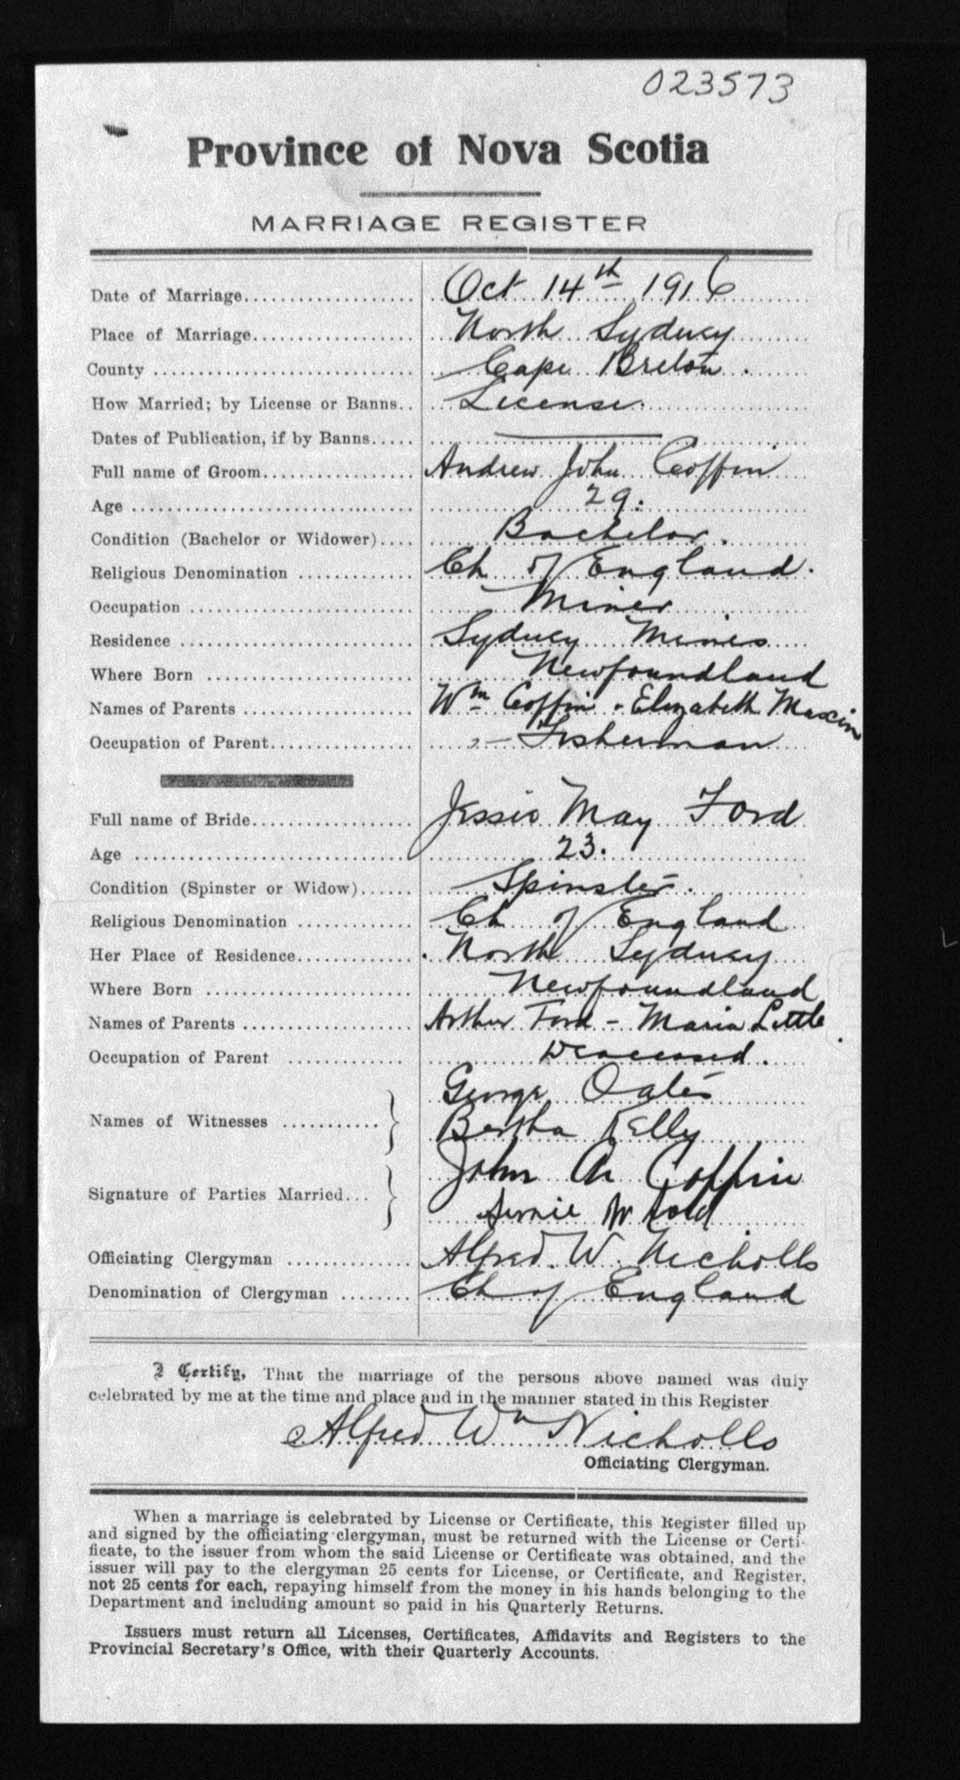 023573
Province of Nova Scotia
MARRIAGE REGISTER
Date of Marriage.................... Oct 14th 1916
Place of Marriage................... North Sydney
County ............................ Cape Breton .
How Married; by License or Banns.. License.
Dates of Publication, if by Banns..... ———
Full name of Groom.................. Andrew John Coffin
Age ................................. 29.
Condition (Bachelor or Widower).... Bachelor.
Religious Denomination ............. Ch of England.
Occupation .......................... Miner
Residence ........................... Sydney Mines
Where Born ........................ Newfoundland
Names of Parents .................... Wm Coffin - Elizabeth
Occupation of Parent................. Fisherman
Full name of Bride................... Jessie May Ford
Age ................................. 23.
Condition (Spinster or Widow)...... Spinster.
Religious Denomination ............. Ch of England
Her Place of Residence.............. North Sydney
Where Born ........................ Newfoundland
Names of Parents .................... Arthur Ford - Maria Little.
Occupation of Parent ............... Deceased.
George Oates
Names of Witnesses ............ }
Bertha Kelly
John A Coffin
Signature of Parties Married... }
Officiating Clergyman ............... Alfred W. Nicholls
Denomination of Clergyman ........ Ch of England
I Certify, That the marriage of the persons above named was duly
celebrated by me at the time and place and in the manner stated in this Register
Alfred Wm Nicholls
Officiating Clergyman.
When a marriage is celebrated by License or Certificate, this Register filled up
and signed by the officiating clergyman, must be returned with the License or Certi-
ficate, to the issuer from whom the said License or Certificate was obtained, and the
issuer will pay to the clergyman 25 cents for License, or Certificate, and Register,
not 25 cents for each, repaying himself from the money in his hands belonging to the
Department and including amount so paid in his Quarterly Returns.
Issuers must return all Licenses, Certificates, Affidavits and Registers to the
Provincial Secretary's Office, with their Quarterly Accounts.